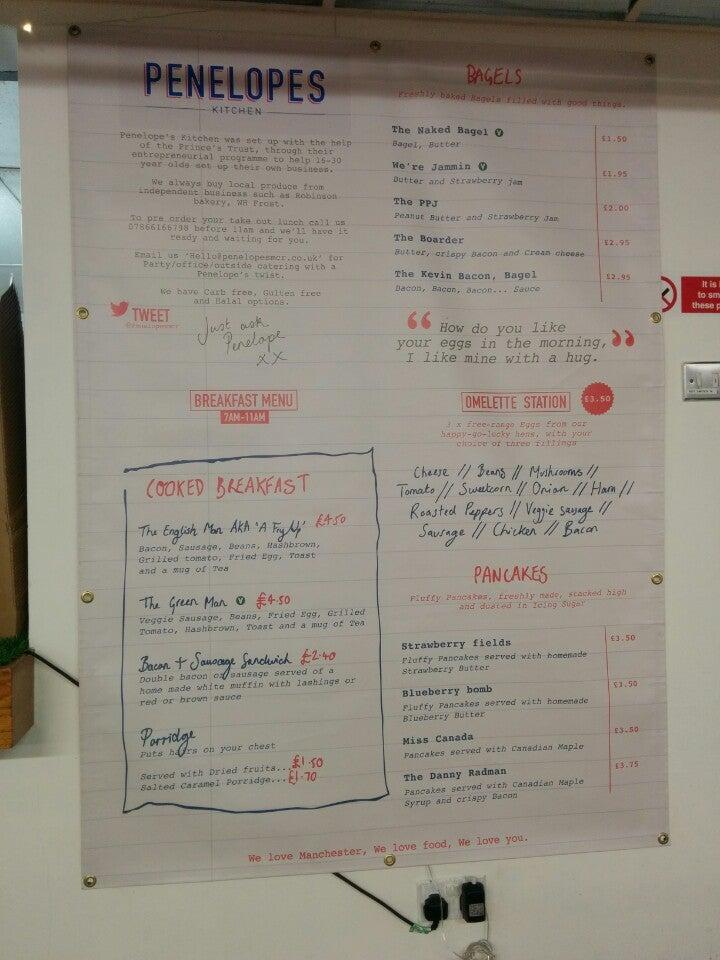 PENELOPES
KITCHEN
Penelope's Kitchen was set up with the help
of the Prince's Trust, through their
entrepreneurial programme to help 16-30
year olds set up their own business.
We always buy local produce from
independent business such as Robinson
bakery, WH Frost.
To pre order your take out lunch call us
07866165798 before 11am and we'll have it
ready and waiting for you.
Email us 'Hello@penelopesmcr.co.uk' for
Party/office/outside catering with a
Penelope's twist.
We have Carb free, Gulten free
and Halal options.
TWEET
@Penelopesmcr
Just ask
Penelope
xx
BREAKFAST MENU
7AM-11AM
COOKED BREAKFAST
The English Man AKA 'A Fry Up' £4.50
Bacon, Sausage, Beans, Hashbrown,
Grilled tomato, Fried Egg, Toast
and a mug of Tea
The Green Man V £4.50
Veggie Sausage, Beans, Fried Egg, Grilled
Tomato, Hashbrown, Toast and a mug of Tea
Bacon + Sausage Sandwich £2.40
Double bacon or sausage served of a
home made white muffin with lashings or
red or brown sauce
Porridge
Puts hairs on your chest
Served with Dried fruits...£1.50
Salted Caramel Porridge...£1.70
BAGELS
Freshly baked Bagels filled with good things.
The Naked Bagel V £1.50
Bagel, Butter
We're Jammin V £1.95
Butter and Strawberry jam
The PPJ £2.00
Peanut Butter and Strawberry Jam
The Boarder £2.95
Butter, crispy Bacon and Cream cheese
The Kevin Bacon, Bagel £2.95
Bacon, Bacon, Bacon... Sauce
“ How do you like
your eggs in the morning, ”
I like mine with a hug.
OMELETTE STATION £3.50
3 x free-range Eggs from our
happy-go-lucky hens, with your
choice of three fillings
Cheese // Beans // Mushrooms //
Tomato // Sweetcorn // Onion // Ham //
Roasted Peppers // Veggie sausage //
Sausage // Chicken // Bacon
PANCAKES
Fluffy Pancakes, freshly made, stacked high
and dusted in Icing Sugar
Strawberry fields £3.50
Fluffy Pancakes served with homemade
Strawberry Butter
Blueberry bomb £3.50
Fluffy Pancakes served with homemade
Blueberry Butter
Miss Canada £3.50
Pancakes served with Canadian Maple
The Danny Radman £3.75
Pancakes served with Canadian Maple
Syrup and crispy Bacon
We love Manchester, We love food, We love you.
It is
to sm
these p